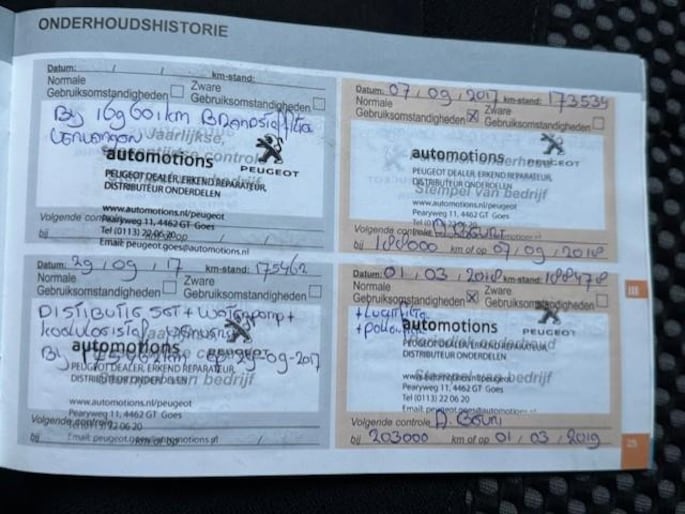 ONDERHOUDSHISTORIE
Datum: / / km-stand:
Normale Gebruiksomstandigheden
Zware Gebruiksomstandigheden
Bij 169601km Brandstoffilter
vervangen
Jaarlijkse,
automotions
PEUGEOT
PEUGEOT DEALER, ERKEND REPARATEUR,
DISTRIBUTEUR ONDERDELEN
www.automotions.nl/peugeot
Pearyweg 11, 4462 GT Goes
Volgende controle
Tel (0113) 22 06 20
Email: peugeot.goes@automotions.nl
Datum: 07 / 09 / 2017 km-stand: 173534
Normale Gebruiksomstandigheden
Zware Gebruiksomstandigheden
automotions
PEUGEOT
PEUGEOT DEALER, ERKEND REPARATEUR,
DISTRIBUTEUR ONDERDELEN
Stempel van bedrijf
www.automotions.nl/peugeot
Pearyweg 11, 4462 GT Goes
Volgende controle
bij 188000 km of op 07 / 09 / 2018
Datum: 29 / 09 / 17 km-stand: 175462
Normale Gebruiksomstandigheden
Zware Gebruiksomstandigheden
Distributie set + waterpomp +
Bij 175462km op 29-09-2017
automotions
PEUGEOT DEALER, ERKEND REPARATEUR,
DISTRIBUTEUR ONDERDELEN
van bedrijf
www.automotions.nl/peugeot
Pearyweg 11, 4462 GT Goes
Volgende controle
bij km of op
Datum: 01 / 03 / 2018 km-stand: 188478
Normale Gebruiksomstandigheden
Zware Gebruiksomstandigheden
+ Luchtfilter
automotions
PEUGEOT
PEUGEOT DEALER, ERKEND REPARATEUR,
DISTRIBUTEUR ONDERDELEN
Stempel van bedrijf
www.automotions.nl/peugeot
Pearyweg 11, 4462 GT Goes
Tel (0113) 22 06 20
Volgende controle
bij 203000 km of op 01 / 03 / 2019
III
25